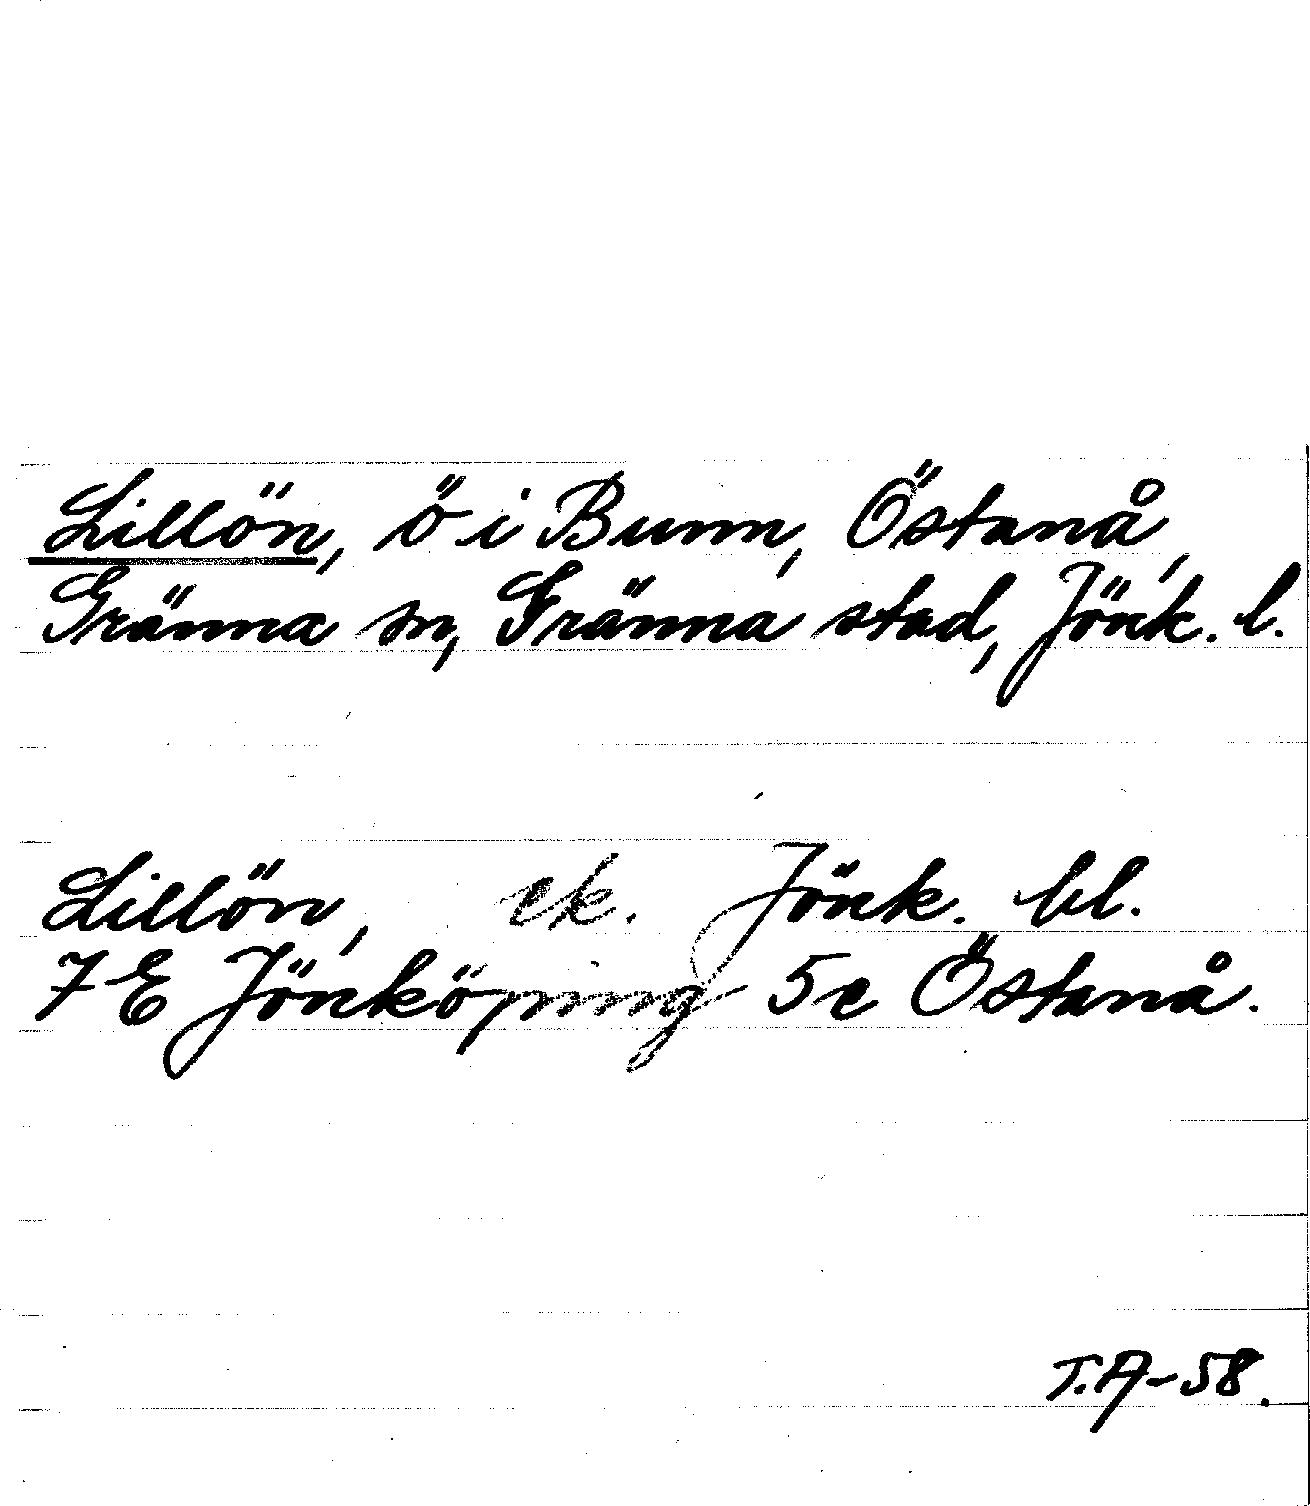 Lillön, ö i Bunn, Östanå,
Gränna sn, Gränna stad, Jönk. l.
Lillön, ek. Jönk. bl.
7 E Jönköping 5e Östanå.
T.A-58.